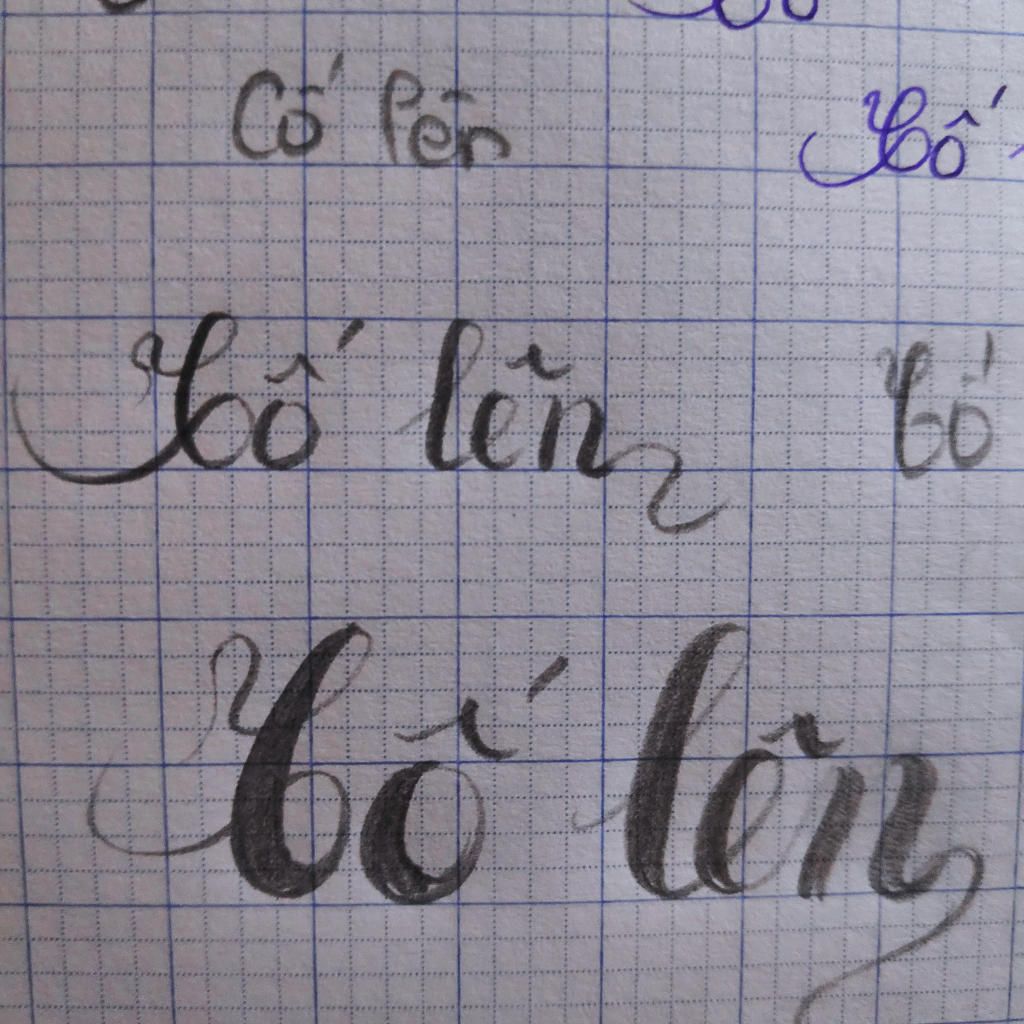 Cố lên Cố
Cố lên Cố
Cố lên